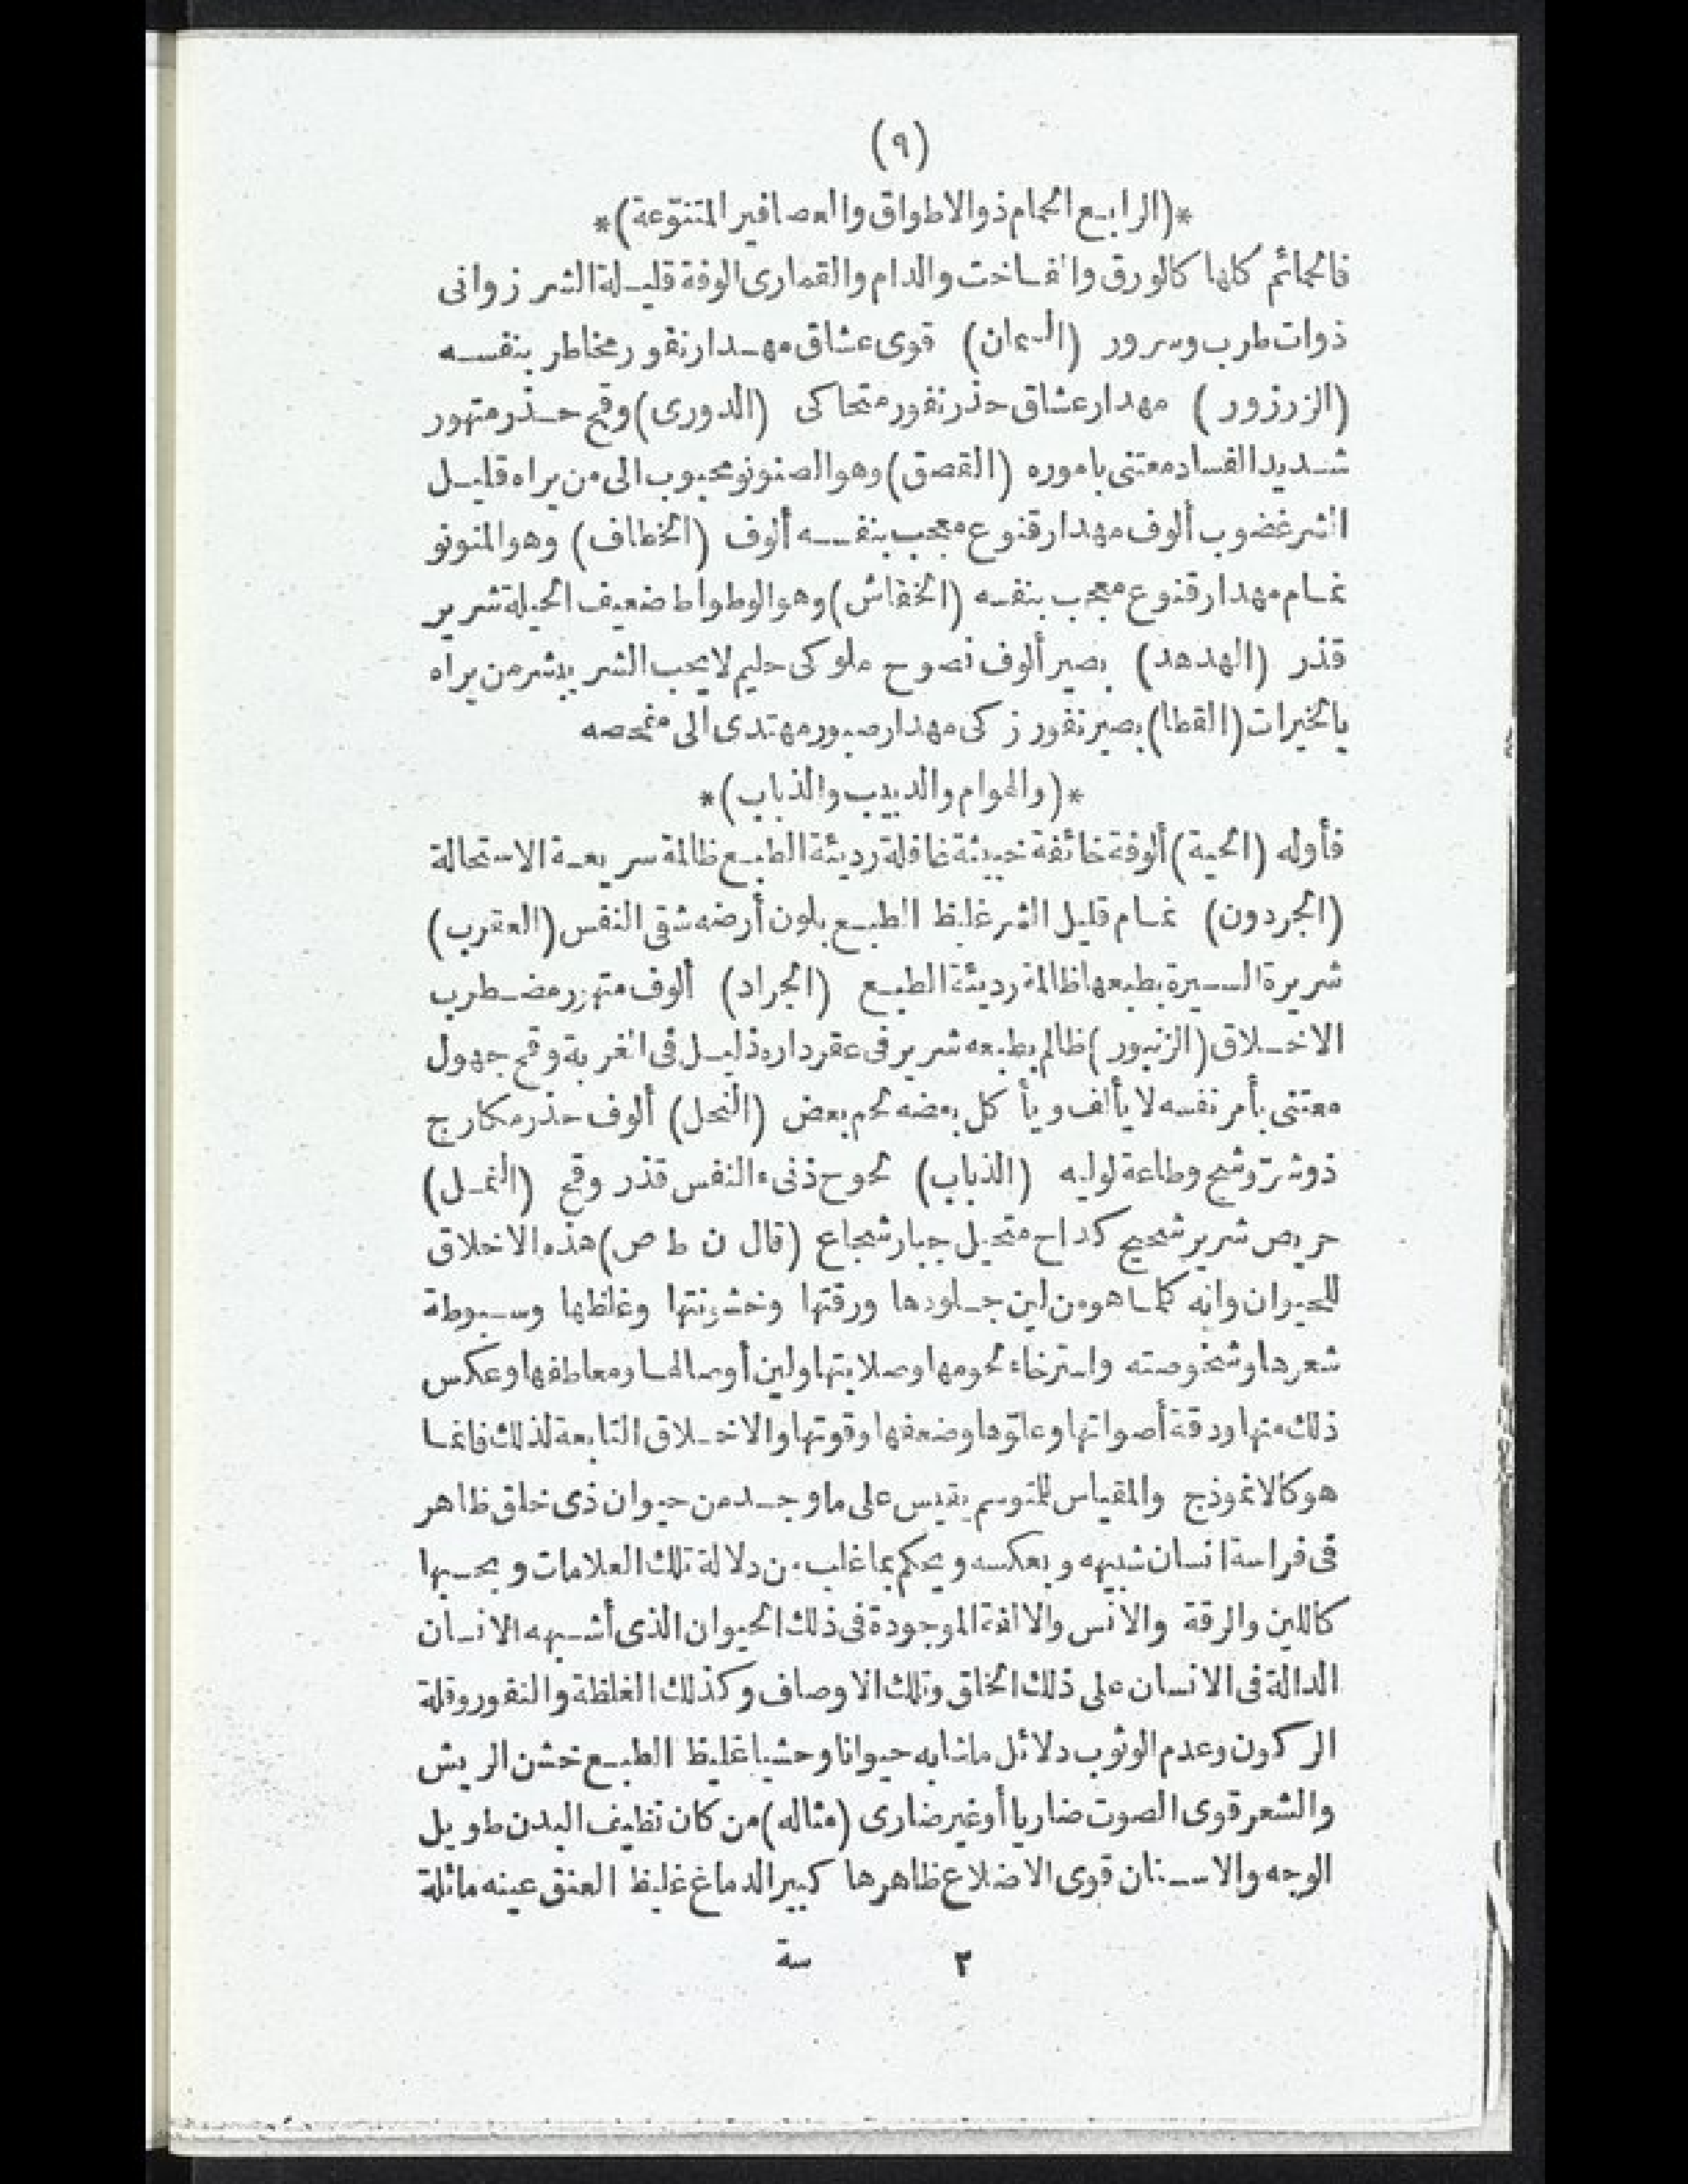 (٩)
*(الرابع الحمام ذو الاطواق والعصافير المتنوّعة)*
فالحمائم كلها كالورق والفاخت والدام والقمارى الوفة قليلة الشر زوانى
ذوات طرب وسرور (السمان) قوى عشاق مهدار نفور مخاطر بنفسه
(الزرزور) مهدار عشاق حذر نفور متحاكى (الدورى) وقح حذر متهور
شديد الفساد معتنى باموره (القصق) وهو الصنونو محبوب الى من يراه قليل
الشر غضوب ألوف مهدار قنوع معجب بنفسه ألوف (الخطاف) وهو المنونو
نمام مهدار قنوع معجب بنفسه (الخفاش) وهو الوطواط ضعيف الحيلة شرير
قذر (الهدهد) بصير ألوف نصوح ملوكى حليم لا يحب الشر يبشر من يراه
بالخيرات (القطا) بصير نفور زكى مهدار صبور مهتدى الى مفحصه
*(والهوام والدبيب والذباب)*
فأوله (الحية) ألوفة خائفة خبيثة غافلة رديئة الطبع ظالمة سريعة الاستحالة
(الجردون) نمام قليل الشر غليظ الطبع بلون أرضه شقى النفس (العقرب)
شريرة السيرة بطبعها ظالمة رديئة الطبع (الجراد) ألوف متهزر مضطرب
الاخلاق (الزنبور) ظالم بطبعه شرير فى عقر داره ذليل فى الغربة وقح جهول
معتنى بأمر نفسه لا يألف ويأكل بعضه لحم بعض (النحل) ألوف حذر مكارج
ذو شرّ وشح وطاعة لوليه (الذباب) لحوح ذنىء النفس قذر وقح (النمل)
حريص شرير شحيح كداح متحيل جبار شجاع (قال ن ط ص) هذه الاخلاق
للحيوان وانه كما هو من لين جلودها ورقتها وخشونتها وغلظها وسبوطة
شعرها وشخوصته واسترخاء لحومها وصلابتها ولين أوصالها ومعاطفها وعكس
ذلك منها ودقة أصواتها وعلوّها وضعفها وقوتها والاخلاق التابعة لذلك فانما
هو كالانموذج والمقياس للمتوسم يقيس على ما وجد من حيوان ذى خلق ظاهر
فى فراسة انسان شبيهه وبعكسه ويحكم بما غلب من دلالة تلك العلامات وبحسبها
كاللين والرقة والانس والالفة الموجودة فى ذلك الحيوان الذى أشبهه الانسان
الدالة فى الانسان على ذلك الخلق وتلك الاوصاف وكذلك الغلظة والنفور وقلة
الركون وعدم الوثوب دلائل ما شابه حيوانا وحشيا غليظ الطبع خشن الريش
والشعر قوى الصوت ضاريا أو غير ضارى (مثاله) من كان نظيف البدن طويل
الوجه والاسنان قوى الاضلاع ظاهرها كبير الدماغ غليظ العنق عينه مائلة
٢ سة